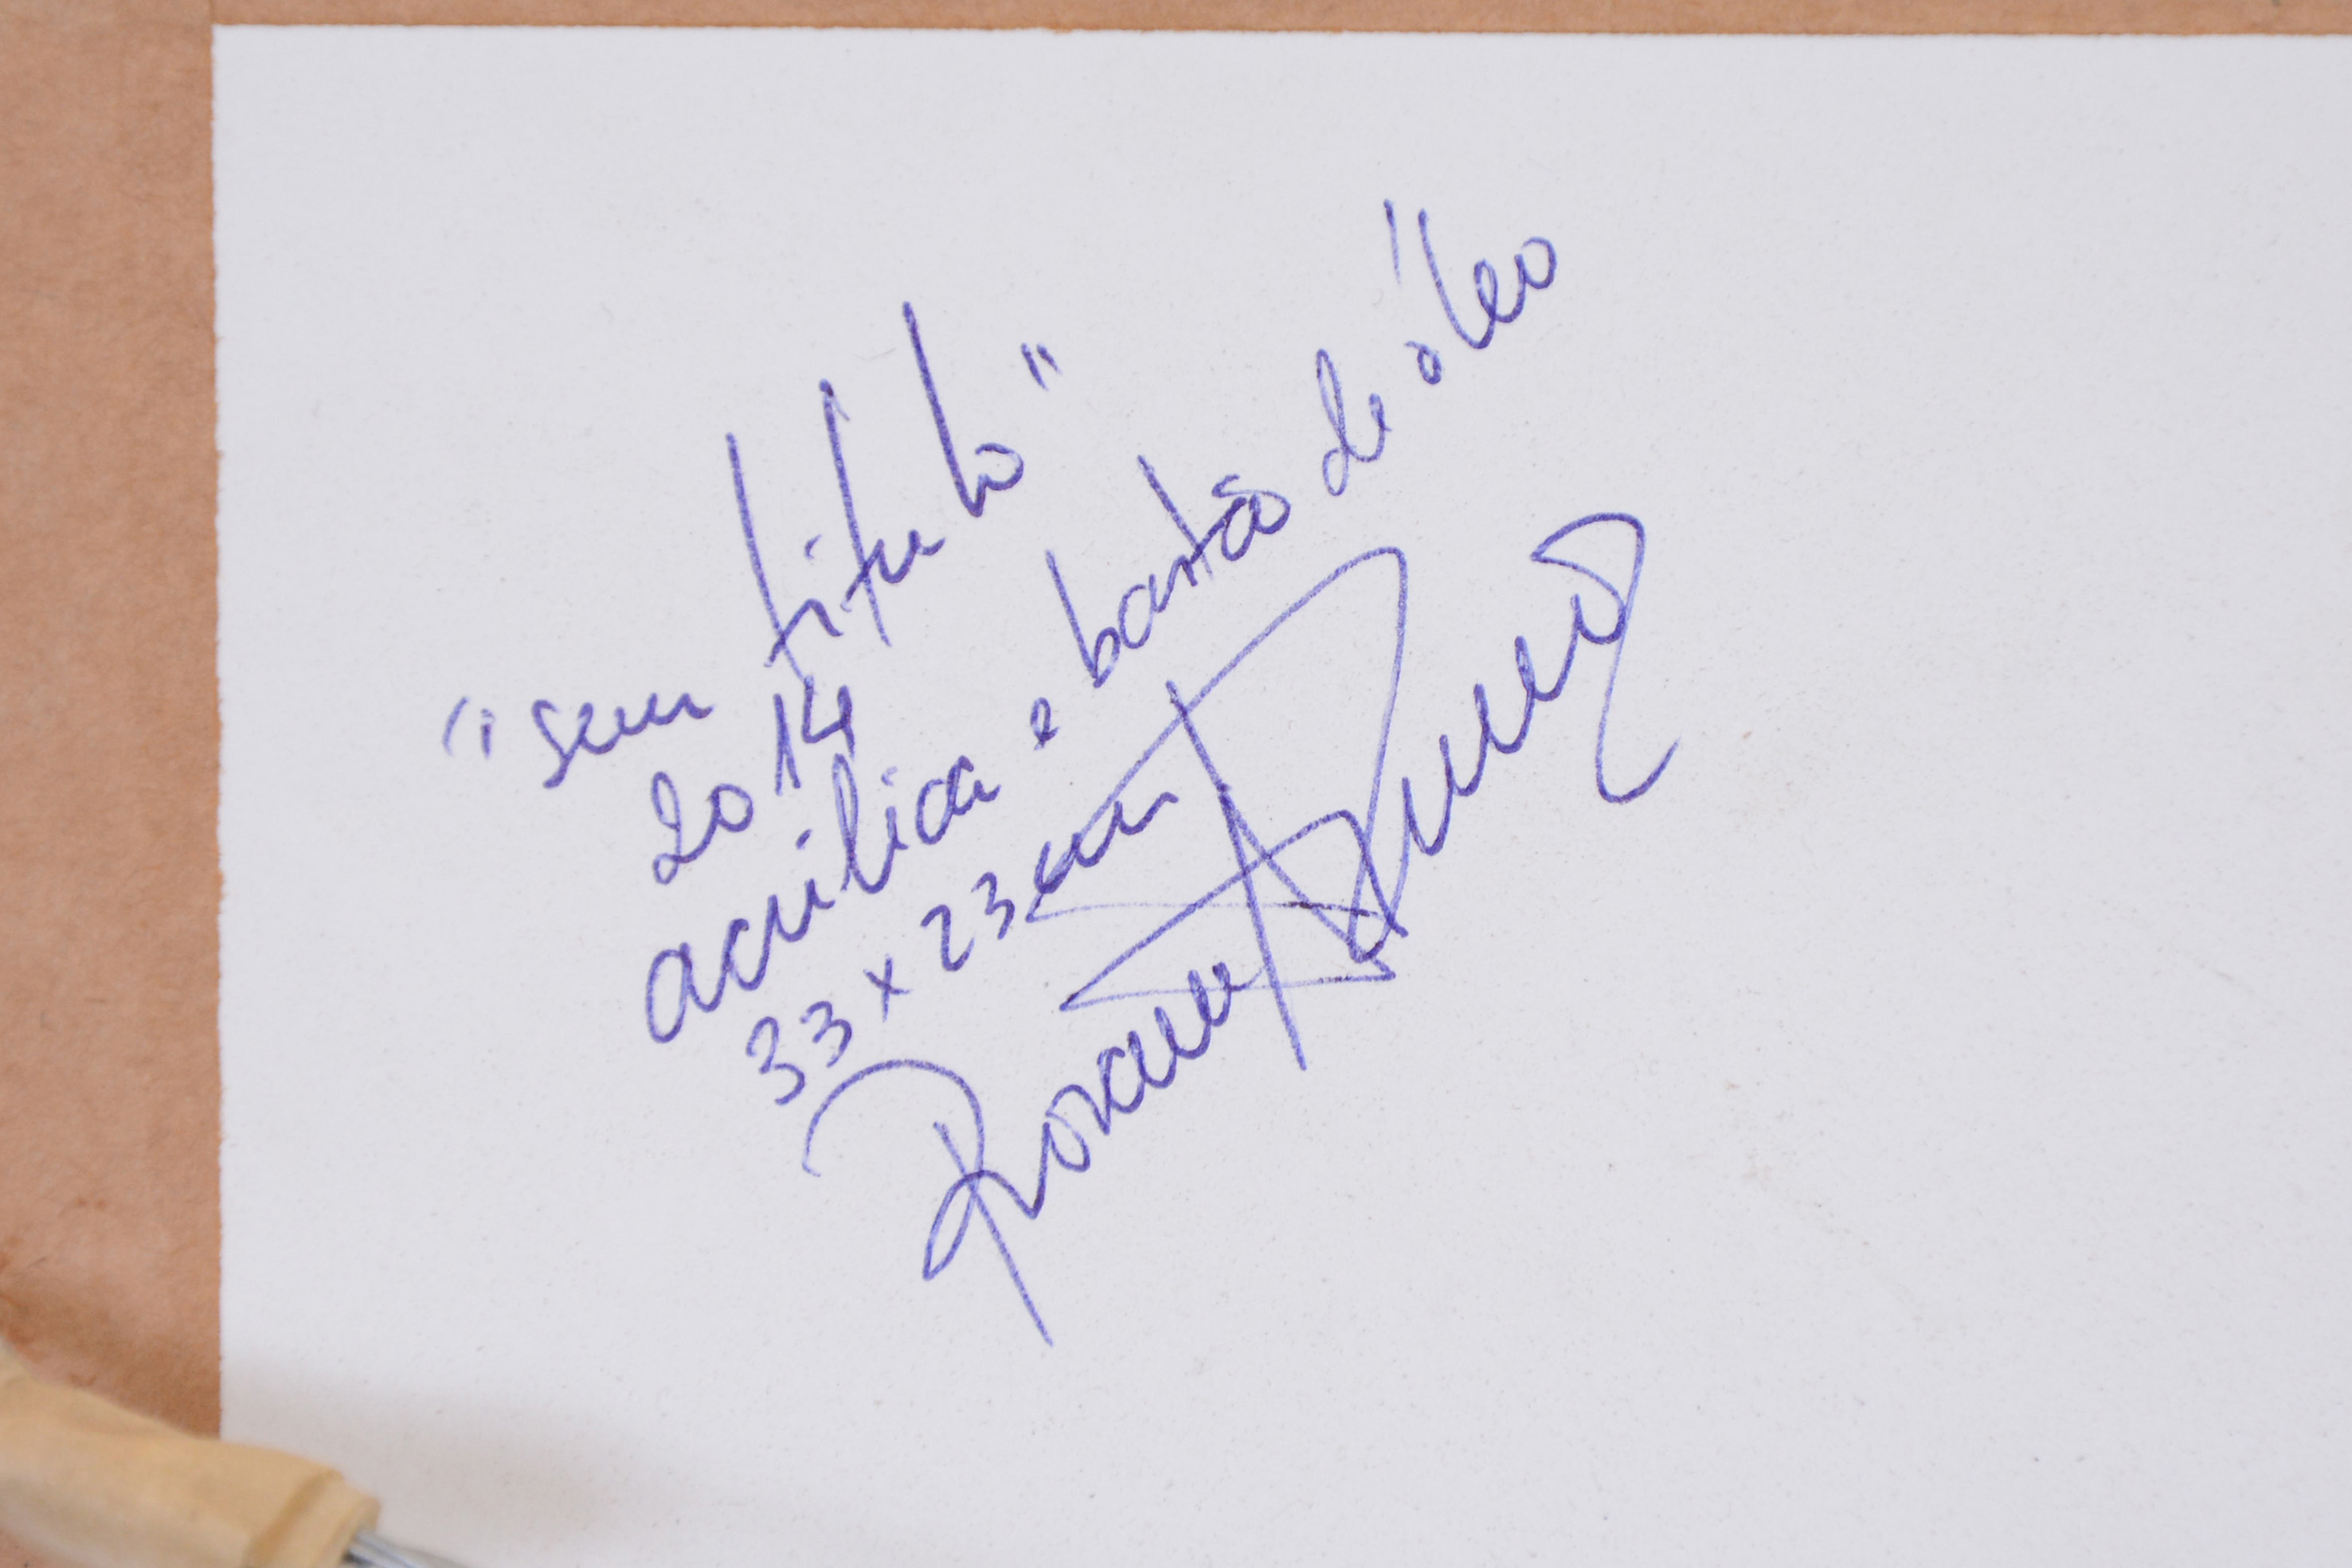 "sem título"
2014
acrílica e bastão de óleo
33 x 23 cm